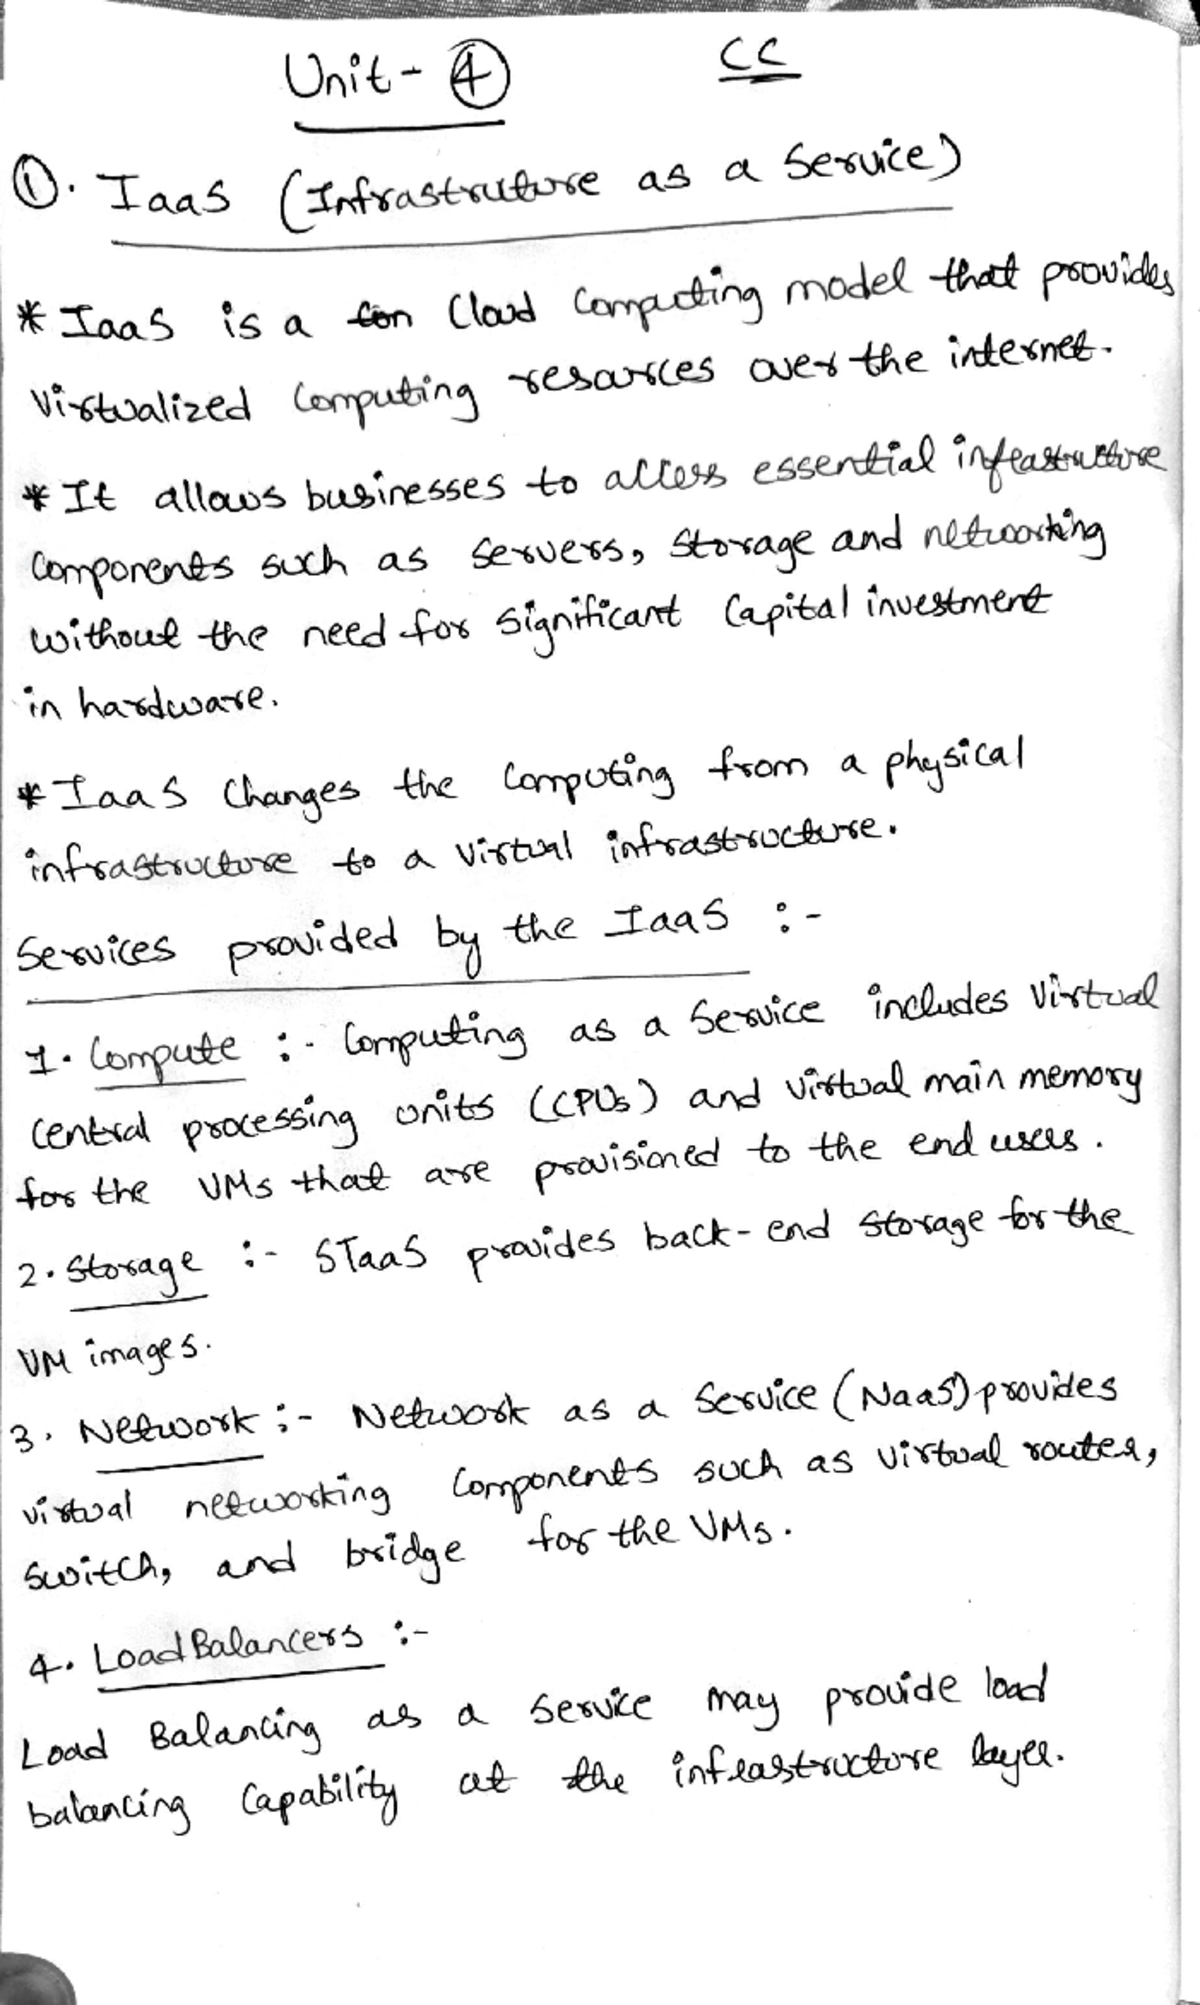 Unit-④ CC
①. IaaS (Infrastruture as a Service)
* IaaS is a Cloud Computing model that provides
Virtualized Computing resources over the internet.
* It allows businesses to access essential infrastructure
Components such as Servers, Storage and networking
without the need for Significant Capital investment
in hardware.
* IaaS Changes the Computing from a physical
infrastructure to a virtual infrastructure.
Services provided by the IaaS :-
1. Compute :- Computing as a Service includes Virtual
Central processing units (CPUs) and virtual main memory
for the VMs that are provisioned to the end users.
2. Storage :- STaaS provides back-end Storage for the
VM images.
3. Network :- Network as a Service (NaaS) provides
virtual networking Components such as virtual router,
Switch, and bridge for the VMs.
4. Load Balancers :-
Load Balancing as a Service may provide load
balancing Capability at the infrastructure layer.